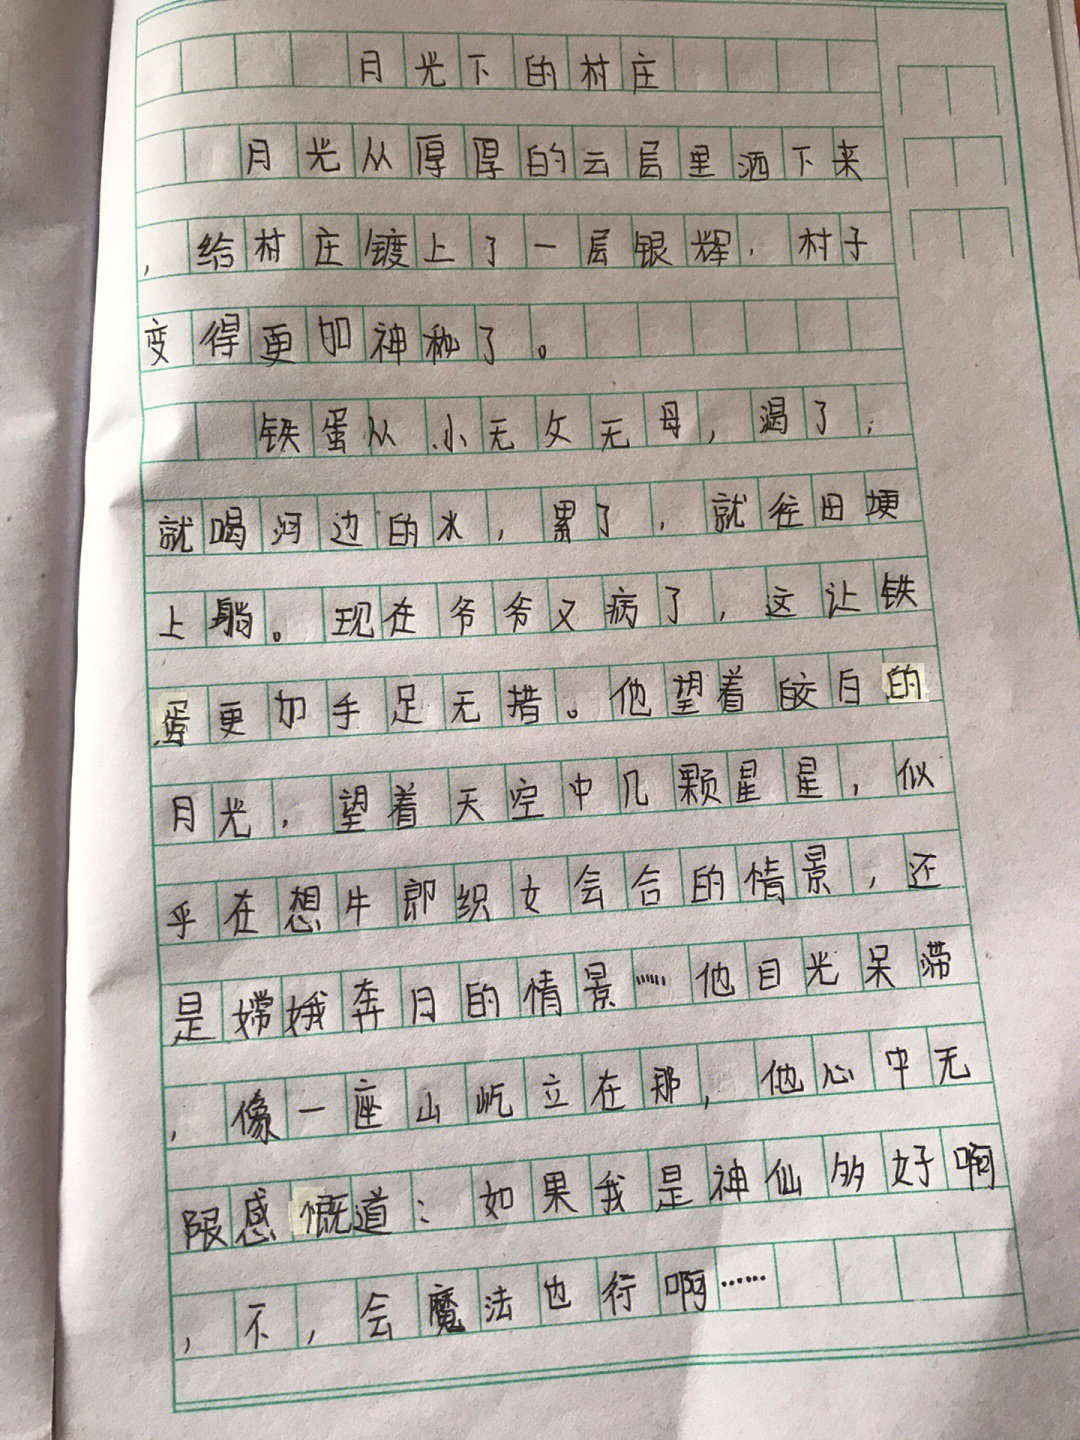 月光下的村庄
月光从厚厚的云层里洒下来
，给村庄镀上了一层银辉，村子
变得更加神秘了。
铁蛋从小无父无母，渴了，
就喝河边的水，累了，就往田埂
上躺。现在爷爷又病了，这让铁
蛋更加手足无措。他望着皎白的
月光，望着天空中几颗星星，似
乎在想牛郎织女会合的情景，还
是嫦娥奔月的情景……他目光呆滞
，像一座山屹立在那，他心中无
限感慨道：如果我是神仙多好啊
，不，会魔法也行啊……